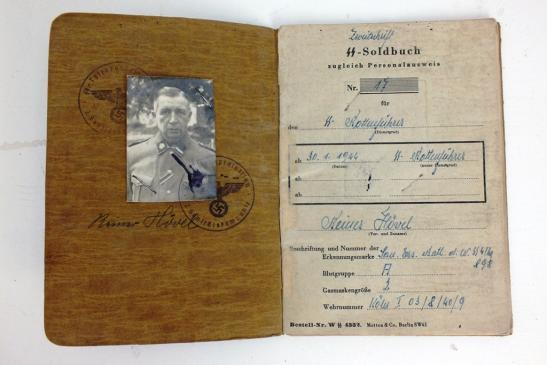 Reiner Hövel
Zweitschrift
SS-Soldbuch
zugleich Personalausweis
Nr. 17
für
den SS Rottenführer
(Dienstgrad)
ab 30.1.1944 SS-Rottenführer
(Datum) (neuer Dienstgrad)
ab
ab
Reiner Hövel
(Vor- und Zuname)
Beschriftung und Nummer der
Erkennungsmarke San. Ers. Batl. d. W.
Blutgruppe A
Gasmaskengröße 2
Wehrnummer Köln I 03/8/40/9
Bestell-Nr. W SS 4332. Metten & Co. Berlin SW61